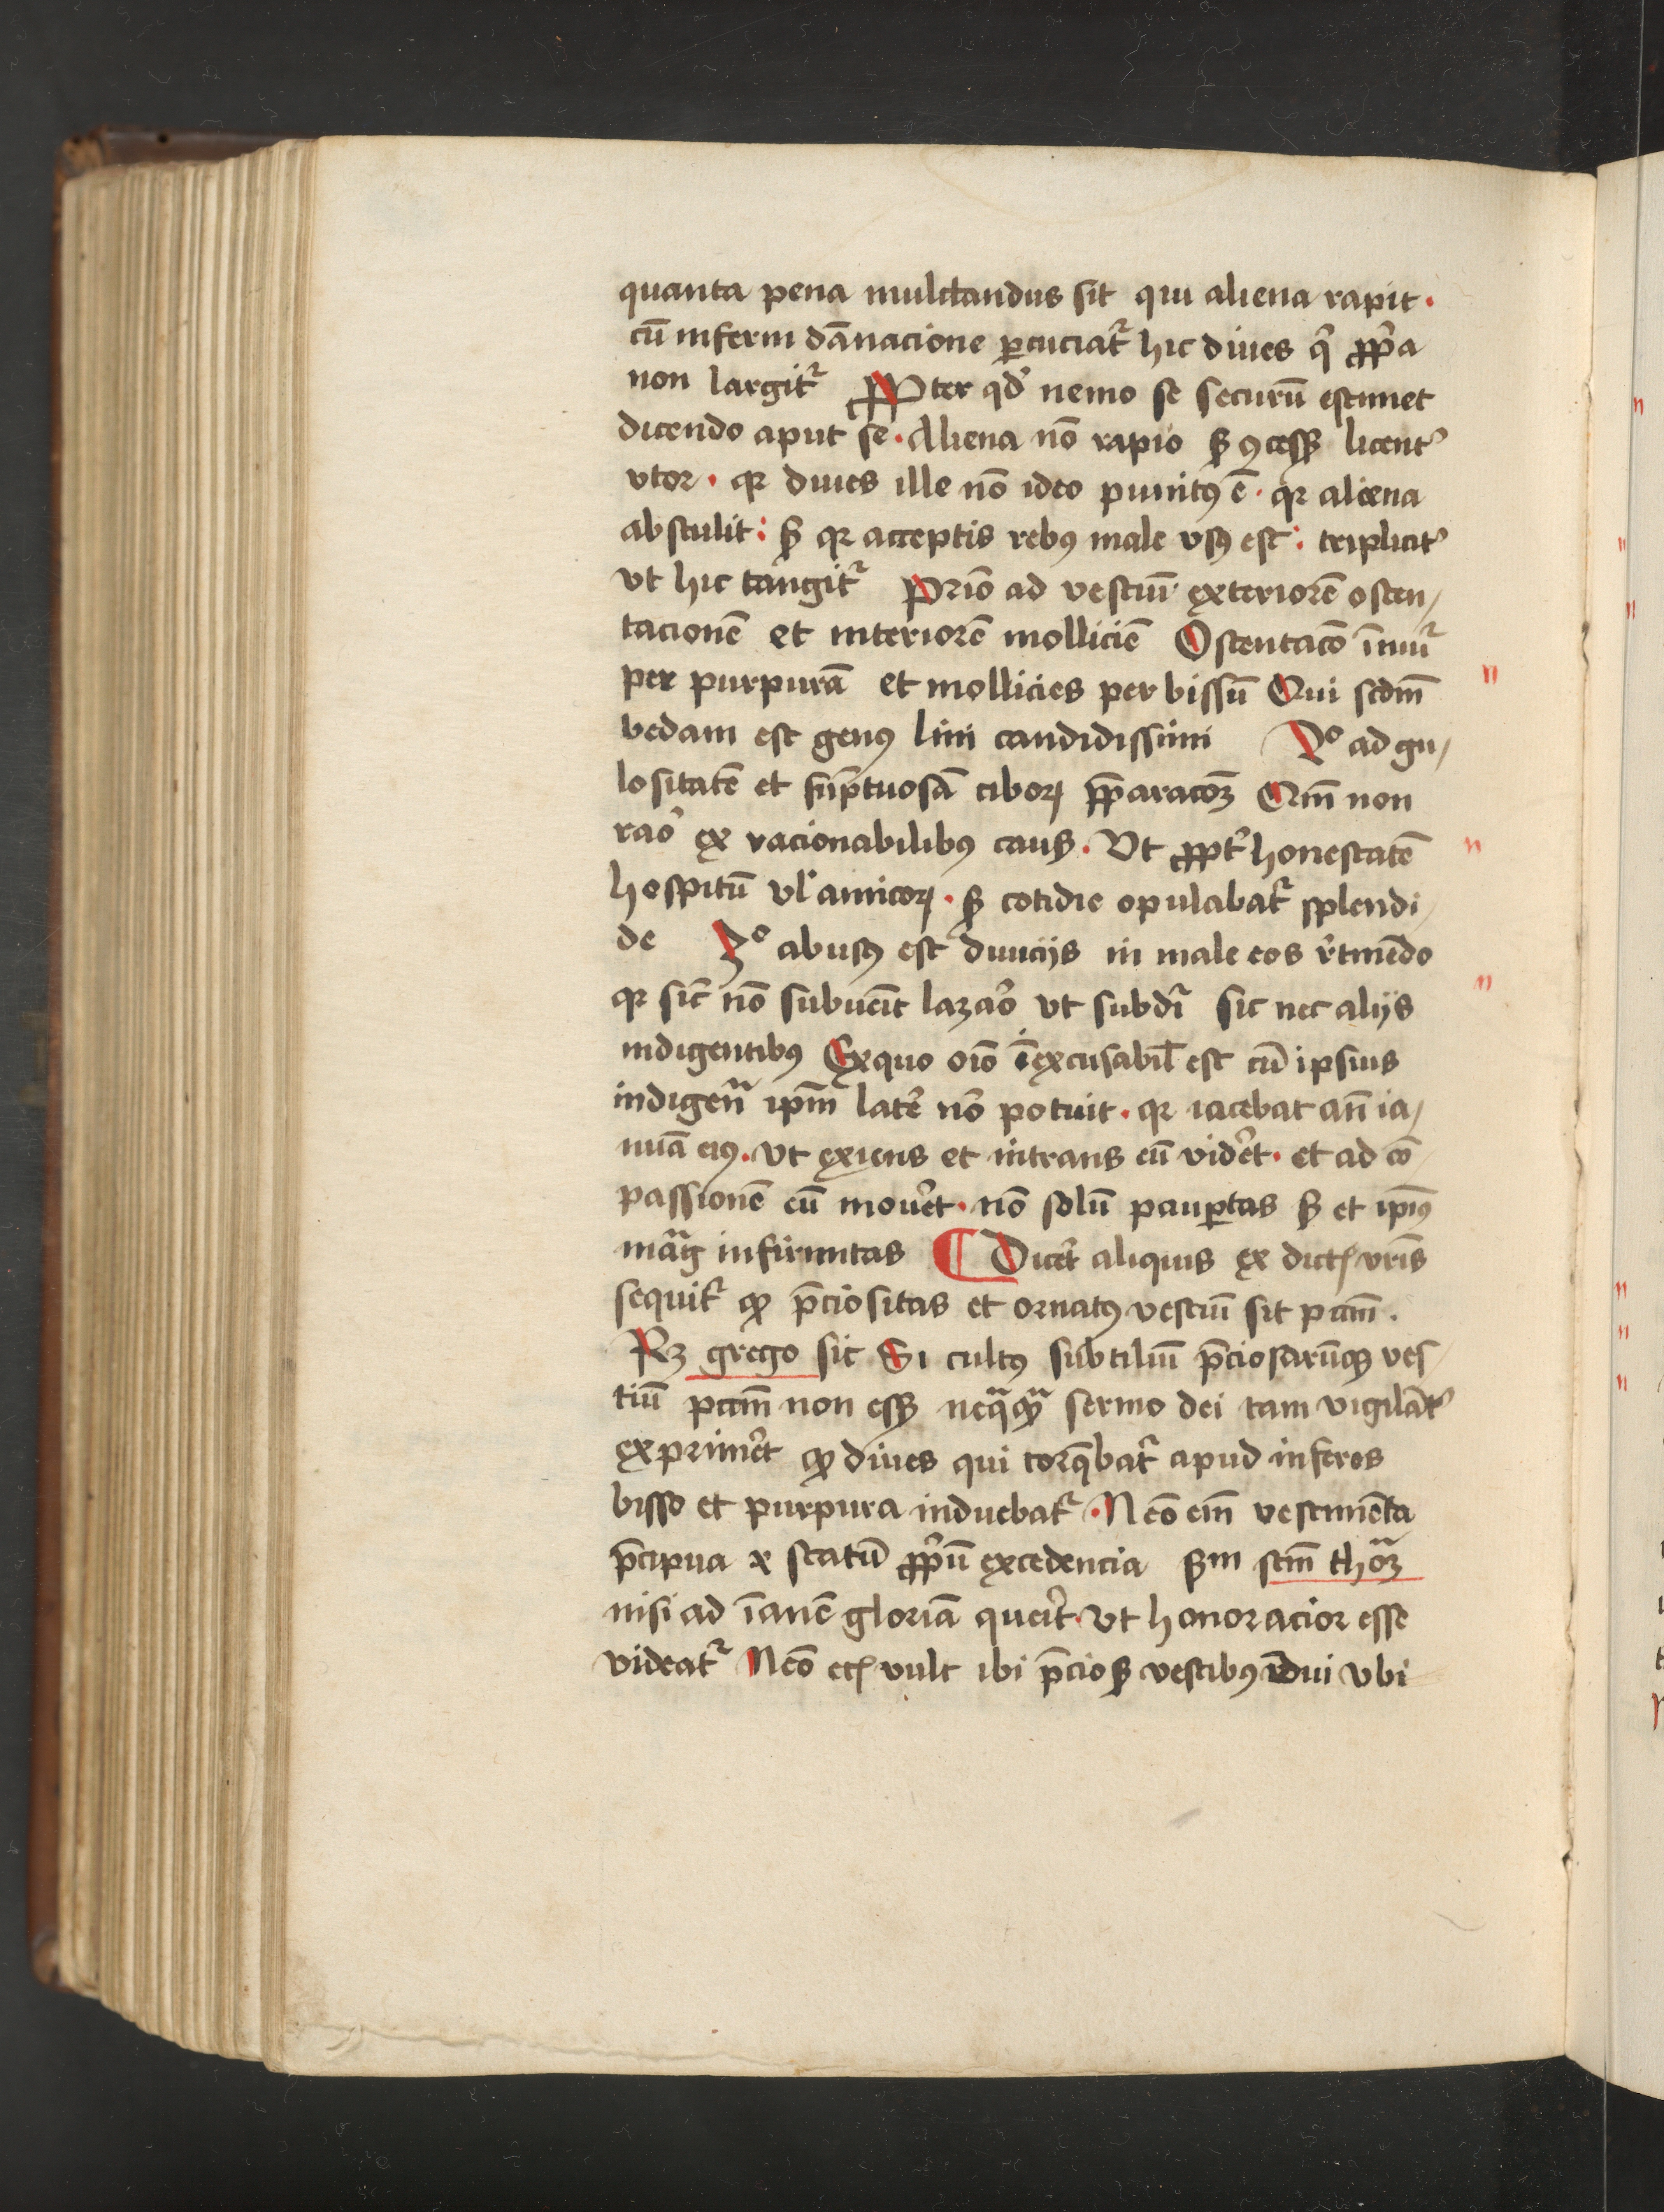 quanta pena mulctandus sit qui aliena rapit ·
cū inferni dānacione ꝑcuciat᷑ hic diues qͥ ꝓpͥa
non largit᷑ Propter qd̓ nemo se securū estimet
dicendo aput se · Aliena nō rapio sꝫ ꝯcessꝭ licent᷑
vtor · qꝛ diues ille nō ideo punitꝰ ē · qꝛ aliena
abstulit : sꝫ qꝛ acceptis rebꝰ male vsꝰ est : triplicit᷑
vt hic tangit᷑ Prīo ad vestiū exteriorē osten/
tacionē et interiorē molliciē Ostentacō īnuit᷑
per purpurā et mollicies per bissū Qui scdm̄
bedam est genꝰ lini candidissimi 2º ad gu/
lositatē et sūptuosā ciboꝝ p̄paracōꝫ Qm̄ non
raō ex racionabilibꝰ causꝭ · Vt ꝓpt᷑ honestatē
hospitū vl̓ amicoꝝ · sꝫ cotidie epulabat᷑ splendi/
de 3º abusꝰ est diuicijs in male eos r̓tinēdo
qꝛ sic̄ nō subuēit lazaro vt subdr̄ sic nec alijs
indigentibꝰ Ex quo oīo īexcusabil̄ est cū ipsius
indigen̄ ipm̄ latē nō potuit · qꝛ iacebat an̄ ia/
nuā eiꝰ · vt exiens et intrans eū vider̄t · et ad cō/
passionē eū mouer̄t · nō solū pauꝑtas sꝫ et ipīꝰ
māg infirmitas ¶ Dicet aliquis ex dictꝭ vr̄is
sequit᷑ ꝙ p̄ciositas et ornatꝰ vestiū sit pcām̄ ·
Rꝫ grego sic Si cultꝰ subtiliū p̄ciosarūqꝫ ves/
tiū pcām̄ non essꝫ neqᷓqᷓ sermo dei tam vigilāt᷑
exprimer̄t ꝙ diues qui torq̄bat᷑ apud inferos
bisso et purpura induebat᷑ · Nēo em̄ vestimēta
p̄cipua ⁊ statū ꝓpͥū excedencia sꝫm scm̄ thoᷓꝫ
nisi ad īanē gloriā querit · vt honoracior esse
videat᷑ Nēo etꝭ vult ibi p̄ciosꝭ vestibꝰ īdui vbi